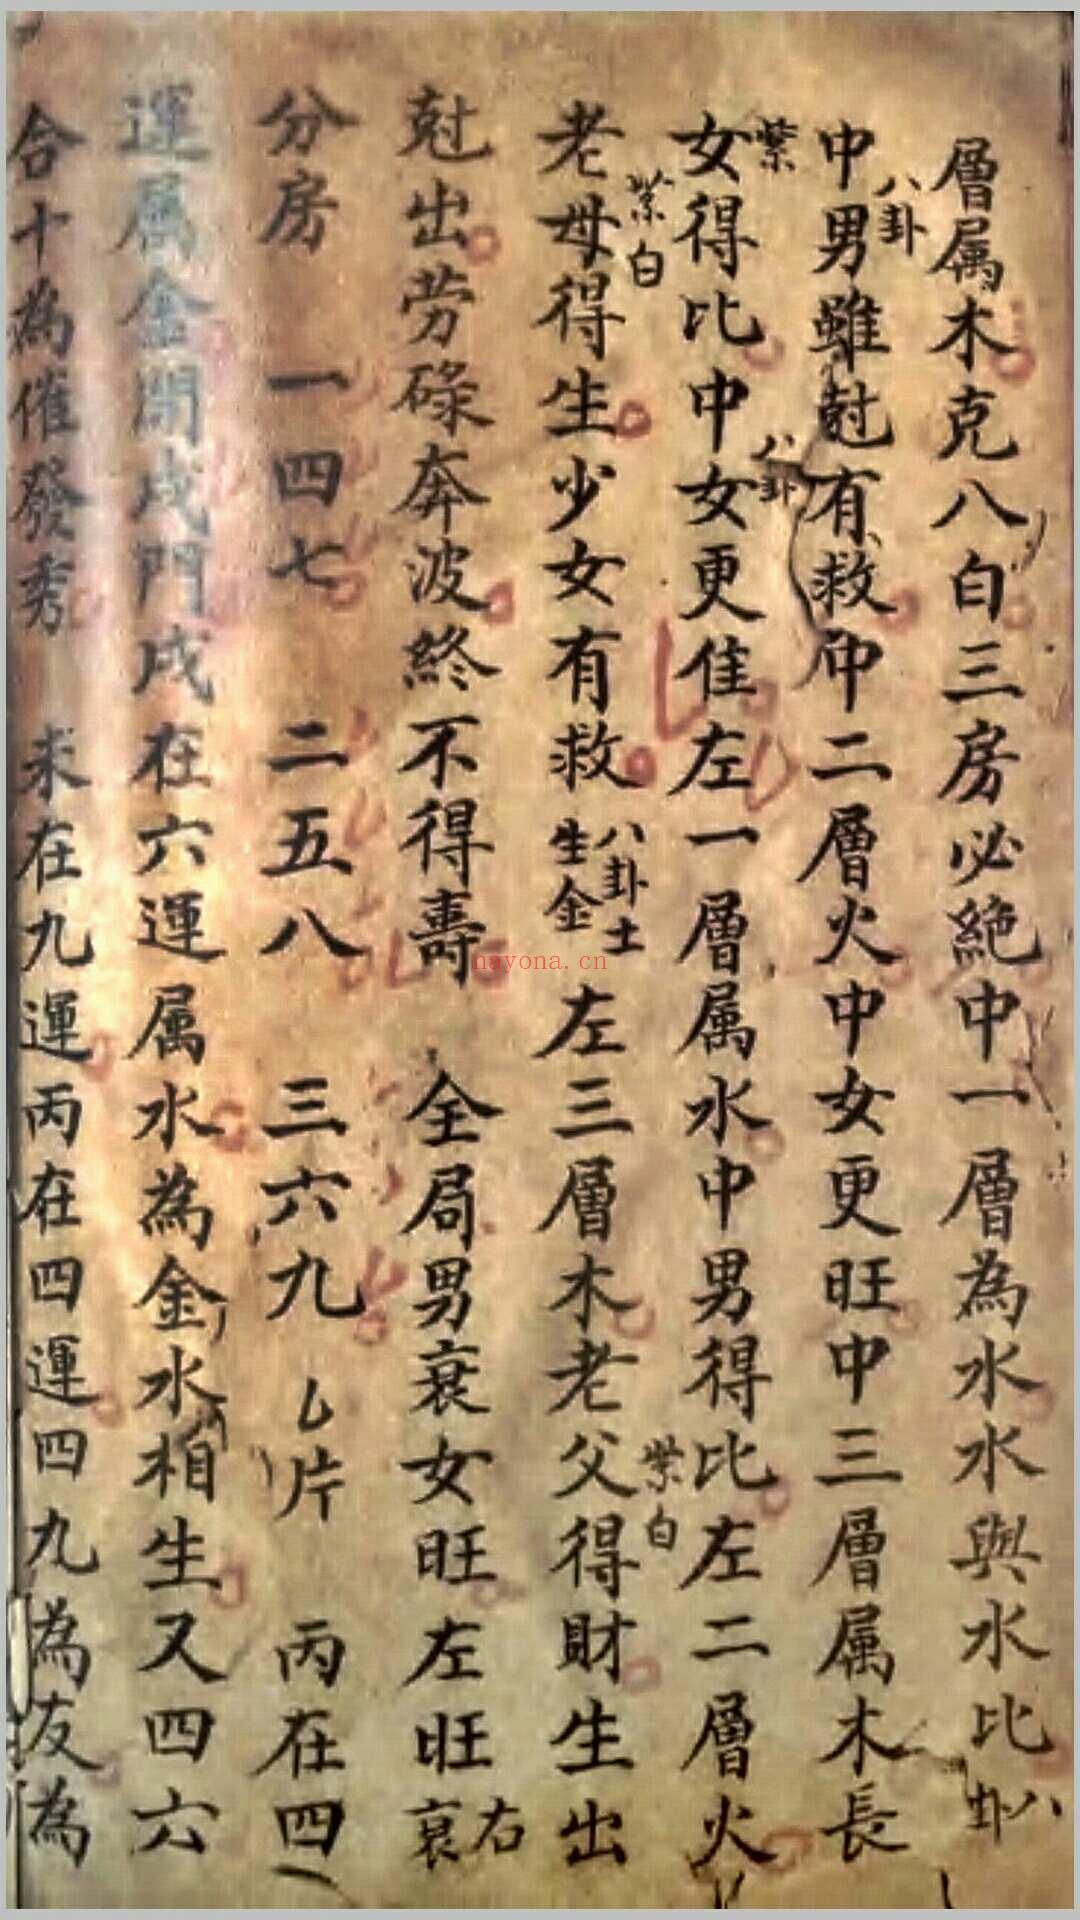 層属木克八白三房必絶中一層為水水與水比八卦
中男雖尅有救中二層火中女更旺中三層属木長
八卦
女得比中女更佳左一層属水中男得比左二層火
紫
八卦
老母得生少女有救八卦土生金左三層木老父得財生出
紫白
紫白
尅出劳碌奔波終不得壽 全局男衰女旺左旺右衰
分房 一四七 二五八 三六九 片 丙在四
運属金開戌門戌在六運属水為金水相生又四六
合十為催發秀 未在九運丙在四運四九為友為
nayona.cn